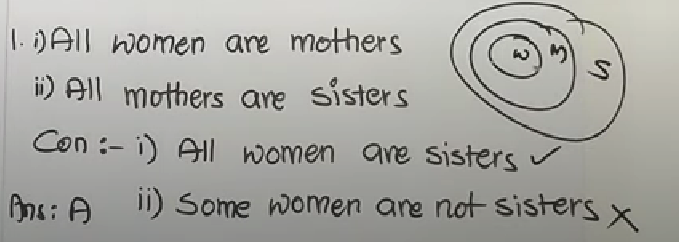 1. i) All women are mothers
ii) All mothers are sisters
Con :- i) All women are sisters ✓
Ans: A ii) Some women are not sisters X
W m S